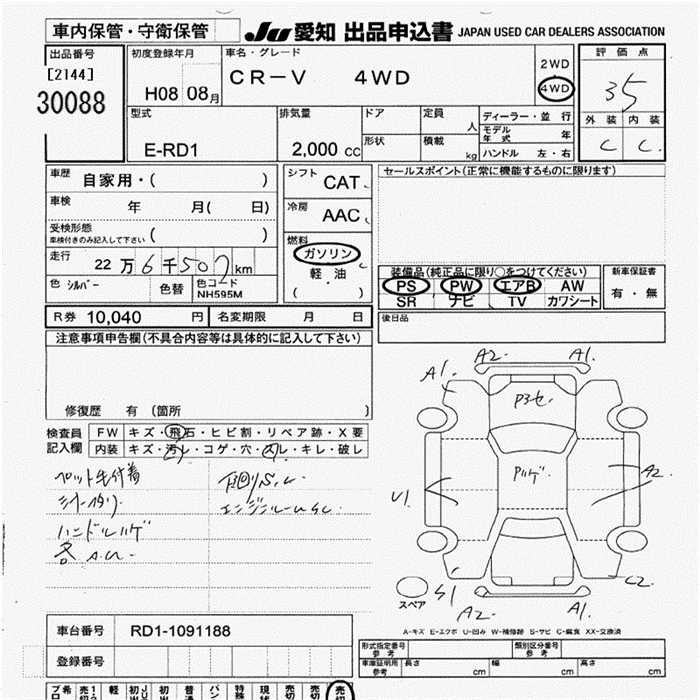 車内保管・守衛保管
JU 愛知 出品申込書 JAPAN USED CAR DEALERS ASSOCIATION
出品番号
[2144]
30088
初度登録年月
H08 08月
車名・グレード
CR-V 4WD
2WD
4WD
評価点
3.5
外装 内装
C C
型式
E-RD1
排気量
2,000 cc
ドア
形状
定員 人
積載 kg
ディーラー・並行
モデル年式 年
ハンドル 左・右
車歴
自家用・( )
車検 年 月( 日)
受検形態
車検付きのみ記入して下さい ( )
走行 22万6千507km
色 シルバー 色替
色コード
NH595M
シフト CAT
冷房 AAC
燃料
ガソリン
軽・油
( )
セールスポイント(正常に機能するものに限ります)
装備品(純正品に限り○をつけてください)
PS PW エアB AW
SR ナビ TV カワシート
新車保証書
有・無
R券 10,040 円 名変期限 月 日
後日品
注意事項申告欄(不具合内容等は具体的に記入して下さい)
修復歴 有 (箇所 )
検査員
記入欄
FW キズ・飛石・ヒビ割・リペア跡・X要
内装 キズ・汚レ・コゲ・穴・スレ・キレ・破レ
ペット毛付着
ハンドルハゲ
エンジンルーム
A2 A1
A1
Pハゲ
A2
U1
C2
S1
A2 A1
スペア
A-キズ E-エクボ U-凹み W-補修跡 S-サビ C-腐食 XX-交換済
車台番号 RD1-1091188
登録番号
形式指定番号
参考
類別区分番号
参考
車庫証明用
参考
長さ cm 幅 cm 高さ cm